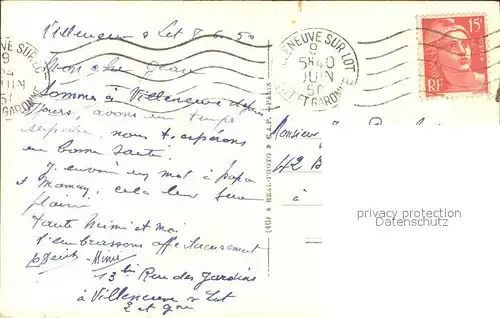 Villeneuve s Lot 8.6.50
Mon cher Jean
Sommes à Villeneuve depuis
jours, avons un temps
nous t. espérons
en bonne santé.
J'envoie un mot à papa
et Maman, cela leur fera
plaisir
Tante Mimi et moi
t'embrassons affectueusement
Mimi
13 bis Rue des Jardins
à Villeneuve s Lot
Lot et Gne
VILLENEUVE SUR LOT
9
5H40
JUIN
50
LOT ET GARONNE
15F
RF
Monsieur
42 B
à
REAL-PHOTO C.A.P. PARIS
privacy protection
watermark